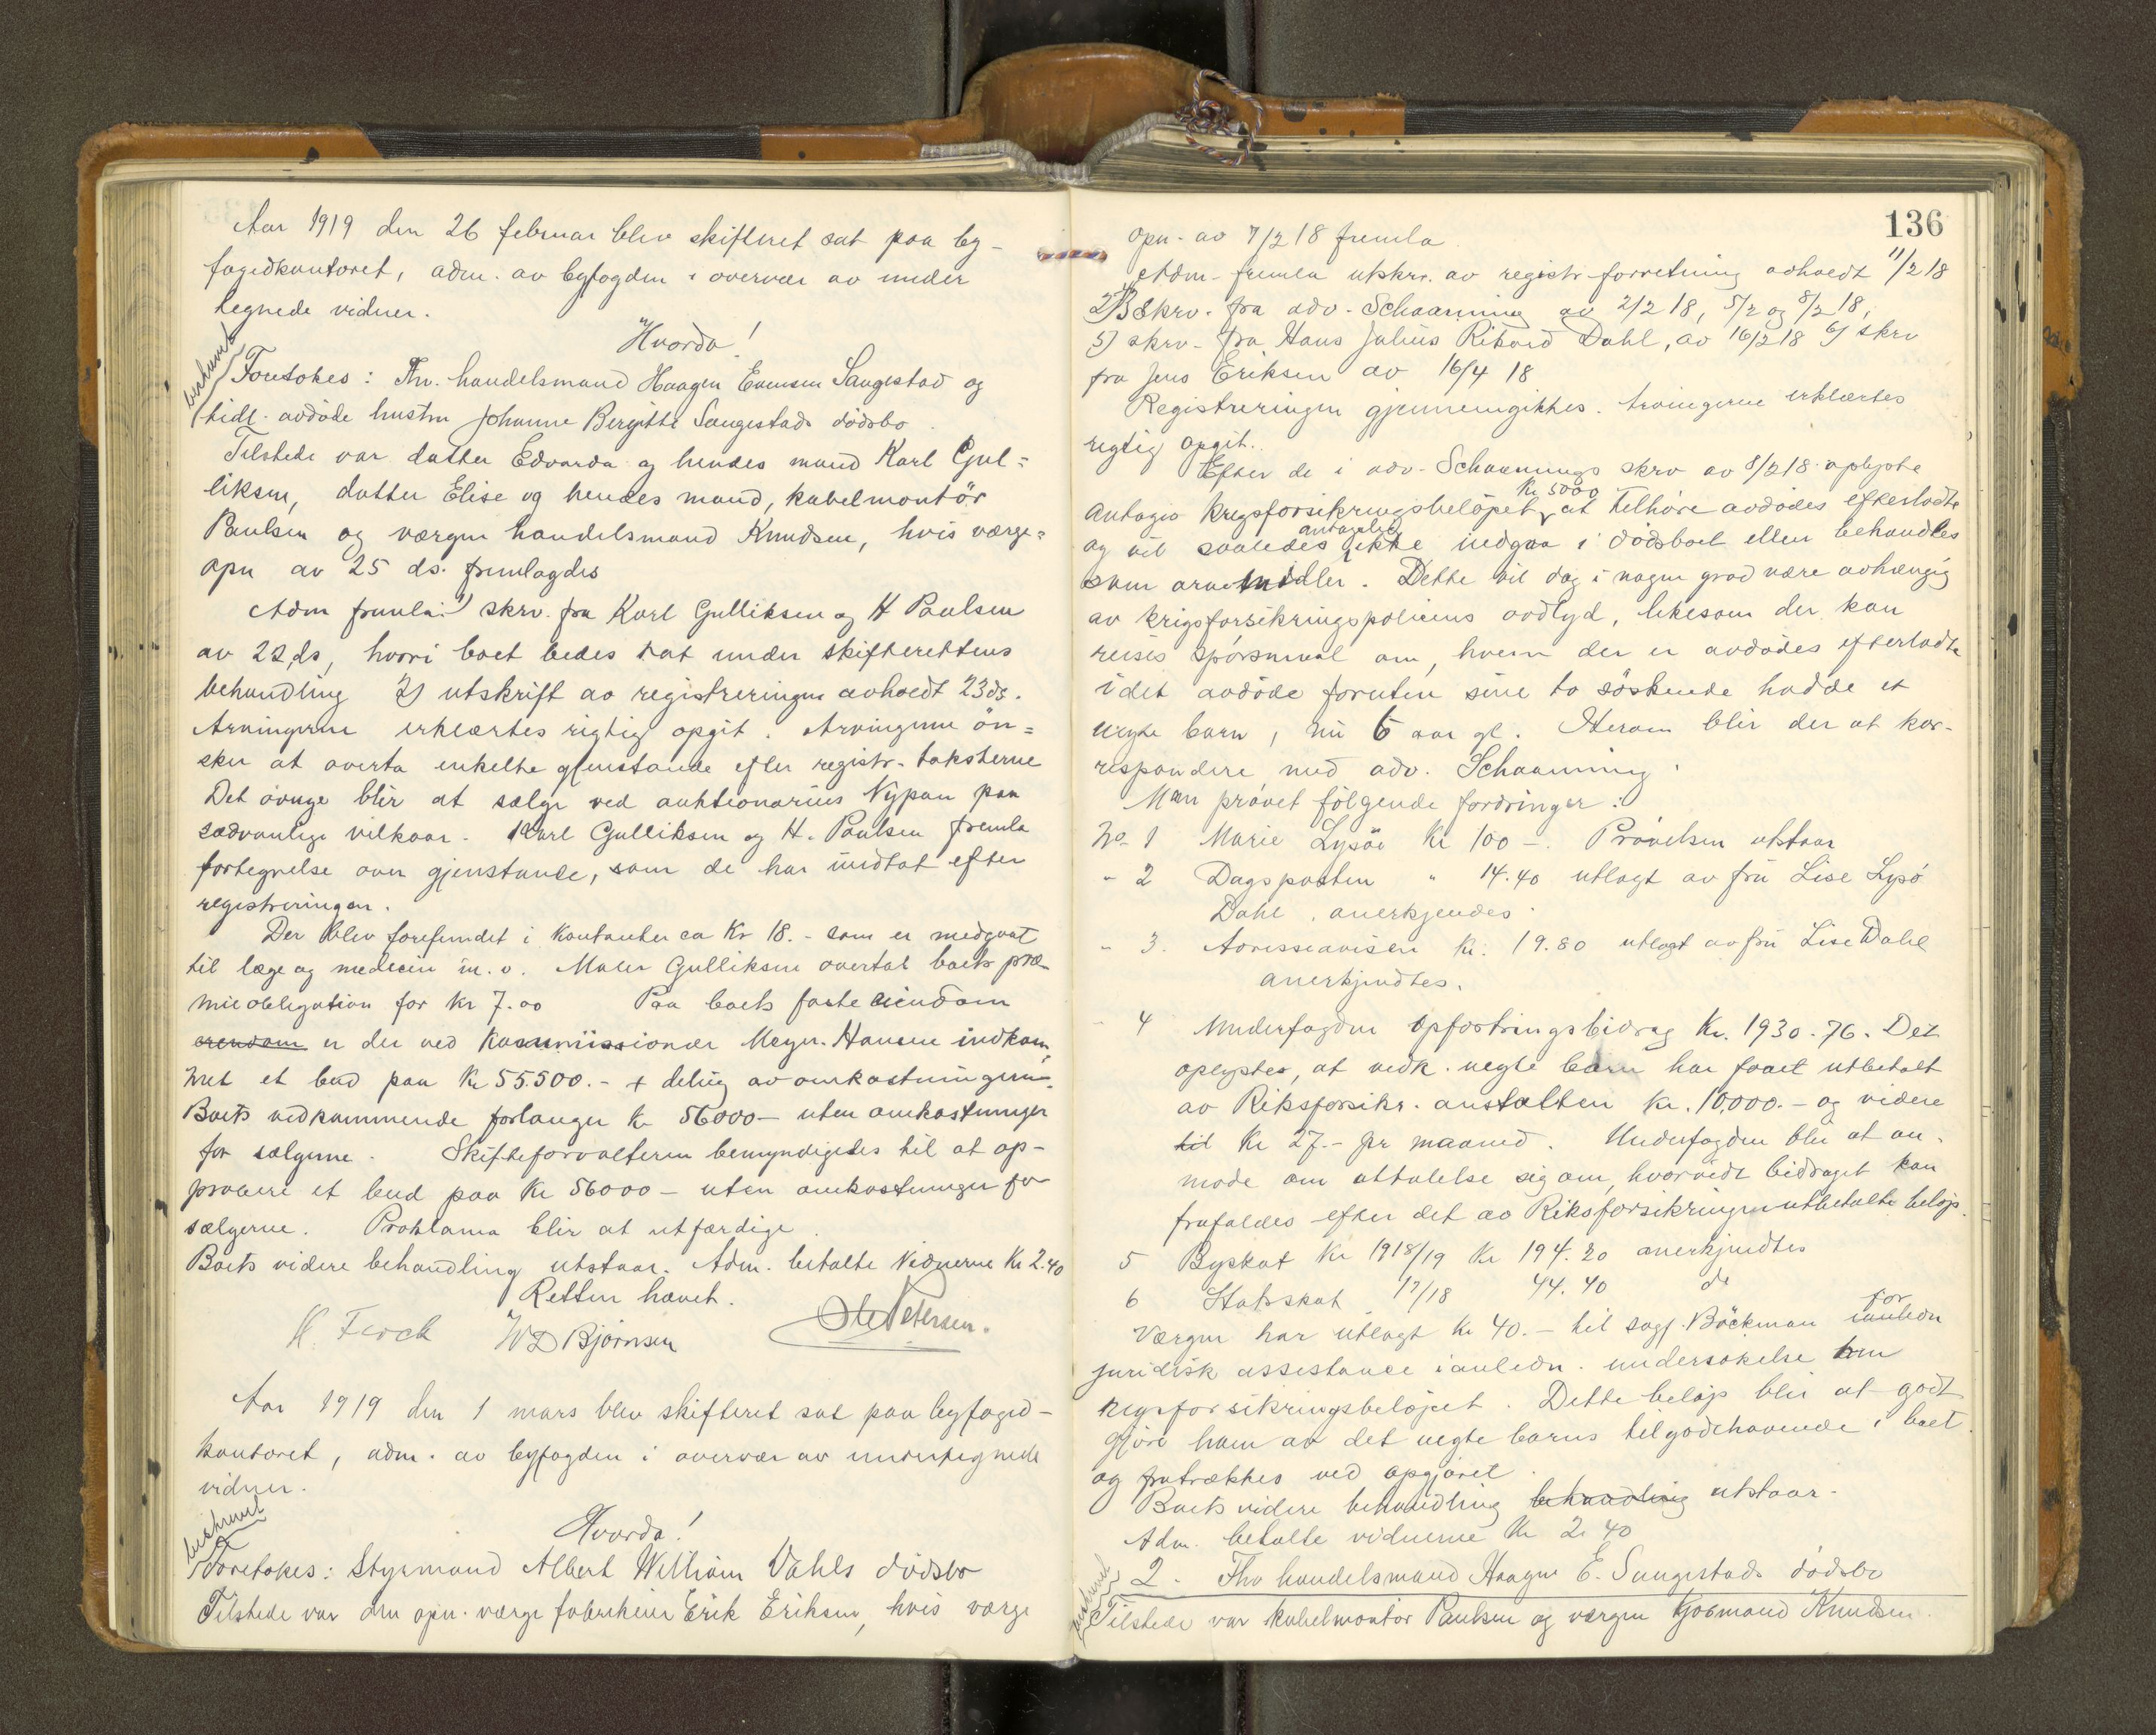 Aar 1919 den 26 februar blev skifteret sat paa by-
fogedkontoret, adm. av byfogden i overvær av under
tegnede vidner.
Hvorda!
beskrevet
Foretokes: Fhv. handelsmand Haagen Evensen Sangestad og
tidl. avdöde hustru Johanne Bergitte Sangestads dödsbo.
Tilstede var datter Edvarda og hendes mand Karl Gul=
liksen, datter Elise og hendes mand, kabelmontör
Paulsen og værgen handelsmand Knudsen, hvis værge=
opn av 25 ds. fremlagdes
Adm fremla: 1) skrv. fra Karl Gulliksen og H Paulsen
av 22 ds, hvori boet bedes tat under skifterettens
behandling 2) utskrift av registreringen avholdt 23 ds.
Arvingerne erklærtes rigtig opgit. Arvingerne ön=
sker at overta enkelte gjenstande efter registr. taksterne
Det övrige blir at sælge ved auktionarius Nypan paa
sædvanlige vilkaar. Karl Gulliksen og H. Paulsen fremla
fortegnelse over gjenstande, som de har indtat efter
registreringen.
Der blev forefundet i kontanter ca Kr 18.- som er medgaat
til læge og medecin m.v. Maler Gulliksen overtok boets præ-
mieobligation for kr 7.00 Paa boets faste eiendom
eiendom er der ved Kommissionær Meyer-Hansen indkom-
met et bud paa Kr 55.500.- + deling av omkostningerne.
Boets vedkommende forlanger kr 56000- uten omkostninger
for sælgerne. Skifteforvalteren bemyndigedes til at ap-
probere et bud paa Kr 56000- uten omkostninger for
sælgerne. Proklama blir at utfærdige.
Boets videre behandling utstaar. Adm. betalte vidnerne Kr 2.40
Retten hævet.
H. Ferch W D Bjørnsen Ole Petersen.
Aar 1919 den 1 mars blev skifteret sat paa byfoged-
kontoret, adm. av byfogden i overvær av undertegnede
vidner.
Hvorda!
beskrevet
Foretokes: Styrmand Albert William Dahls dödsbo
Tilstede var den opn. værge fabrikeier Erik Eriksen, hvis værge
136
opn. av 7/2 18 fremla
Adm. fremla utskr. av registr-forretning avholdt 11/2 18
2) 3 skrv. fra adv. Schaanning av 2/2 18, 5/2 og 8/2 18,
5) skrv. fra Hans Julius Rikard Dahl, av 16/2 18 6) skrv
fra Jens Eriksen av 16/4 18
Registreringen gjennemgikkes. Arvingerne erklærtes
rigtig opgit.
Efter de i adv. Schaannings skrv av 8/2 18 oplyste
Kr 5000
antages krigsforsikringsbelöpet at tilhöre avdödes efterladte
antagelig
og vil saaledes ikke indgaa i dödsboet eller behandles
som arvemidler. Dette vil dog i nogen grad være avhængig
av krigsforsikringspolicens ordlyd, likesom der kan
reises spörsmaal om, hvem der er avdödes efterladte
idet avdöde foruten sine to söskende hadde et
uegte barn, nu 6 aar gl. Herom blir der at kor-
respondere med adv. Schaanning.
Man prövet fölgende fordringer:
No 1 Marie Lysöe Kr 100-. Prövelsen utstaar
" 2 Dagsposten " 14.40 utlagt av fru Lise Lysö
Dahl, anerkjendes.
" 3. Adresseavisen Kr. 19.80 utlagt av fru Lise Dahl
anerkjendtes.
" 4 Underfogden opfostringsbidrag Kr. 1930.76. Det
oplystes, at vedk. uegte barn har faaet utbetalt
av Riksforsikr. anstalten Kr. 10,000.- og videre
til Kr 27.- pr maaned. Underfogden blir at an-
mode om at uttale sig om, hvorvidt bidraget kan
frafaldes efter det av Riksforsikringen utbetalte belöp.
5 Byskat Kr 1918/19 Kr 194.20 anerkjendtes
6 Statsskat 17/18 44.40 do
for
Værgen har utlagt Kr 40.- til sagf. Böckman ianledn
juridisk assistance ianledn. undersökelse om
krigsforsikringsbelöpet. Dette belöp blir at godt
gjöre ham av det uegte barns tilgodehavende i boet
og fratrækkes ved opgjöret.
Boets videre behandling behandling utstaar.
Adm. betalte vidnerne Kr 2.40
beskrevet
2. Fhv handelsmand Haagen E. Sangestads dödsbo
Tilstede var kabelmontör Paulsen og værgen Kjöbmand Knudsen.